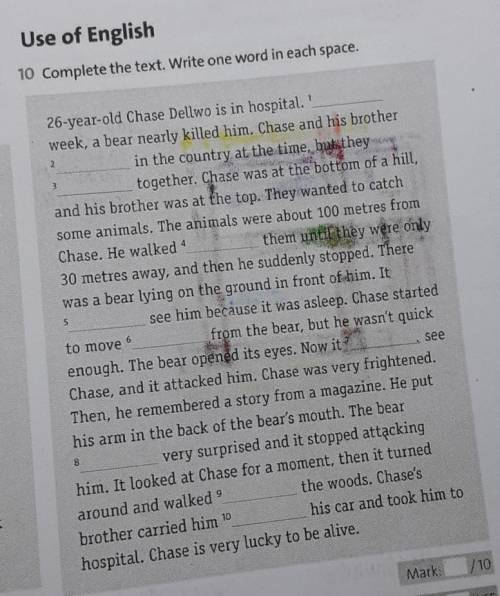 Use of English
10 Complete the text. Write one word in each space.
26-year-old Chase Dellwo is in hospital. 1
week, a bear nearly killed him. Chase and his brother
2 in the country at the time, but they
3 together. Chase was at the bottom of a hill,
and his brother was at the top. They wanted to catch
some animals. The animals were about 100 metres from
Chase. He walked 4 them until they were only
30 metres away, and then he suddenly stopped. There
was a bear lying on the ground in front of him. It
5 see him because it was asleep. Chase started
to move 6 from the bear, but he wasn't quick
enough. The bear opened its eyes. Now it 7 see
Chase, and it attacked him. Chase was very frightened.
Then, he remembered a story from a magazine. He put
his arm in the back of the bear's mouth. The bear
8 very surprised and it stopped attacking
him. It looked at Chase for a moment, then it turned
around and walked 9 the woods. Chase's
brother carried him 10 his car and took him to
hospital. Chase is very lucky to be alive.
Mark: /10